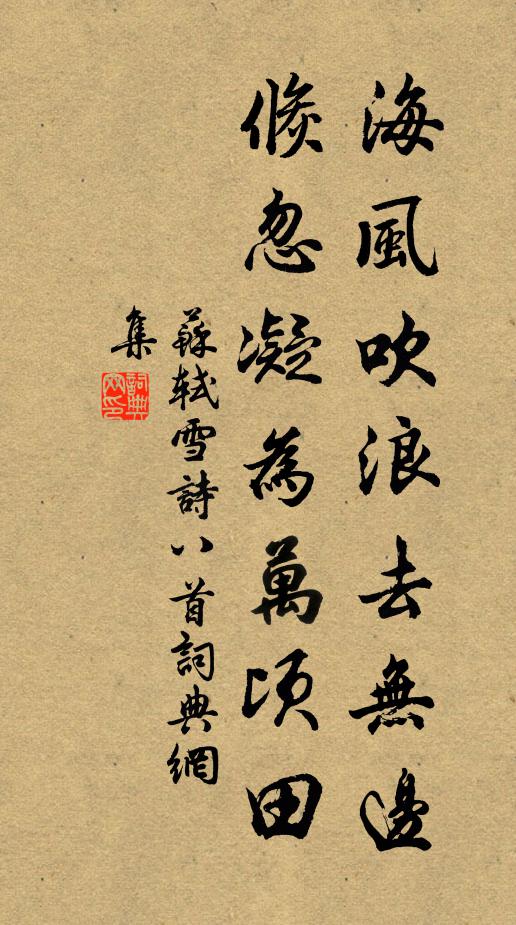 海風吹浪去無邊
倐忽凝為萬頃田
蘇軾雪詩八首詞典網
集
詞典網印